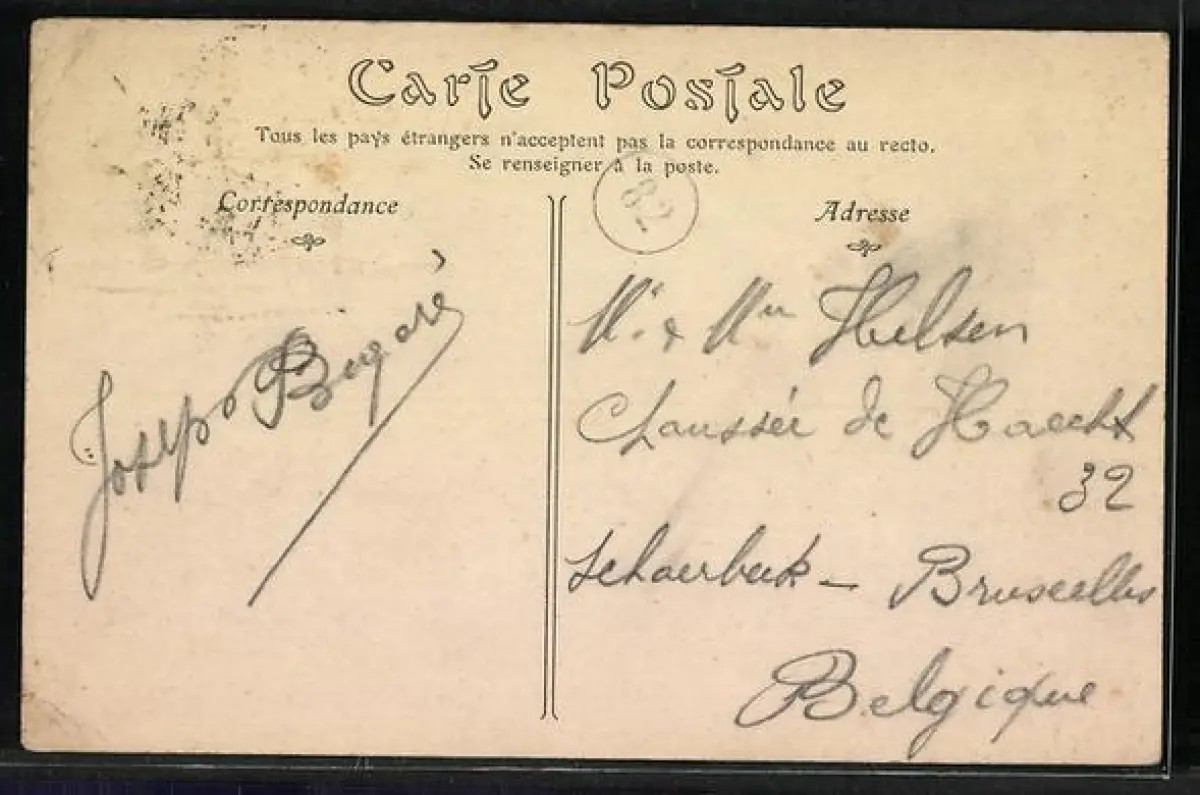 Carte Postale
Tous les pays étrangers n'acceptent pas la correspondance au recto.
Se renseigner à la poste.
Correspondance
Adresse
82
Joseph Bugaré
Mr & Mme Helsen
Chaussée de Haecht
32
Schaerbeek – Bruxelles
Belgique